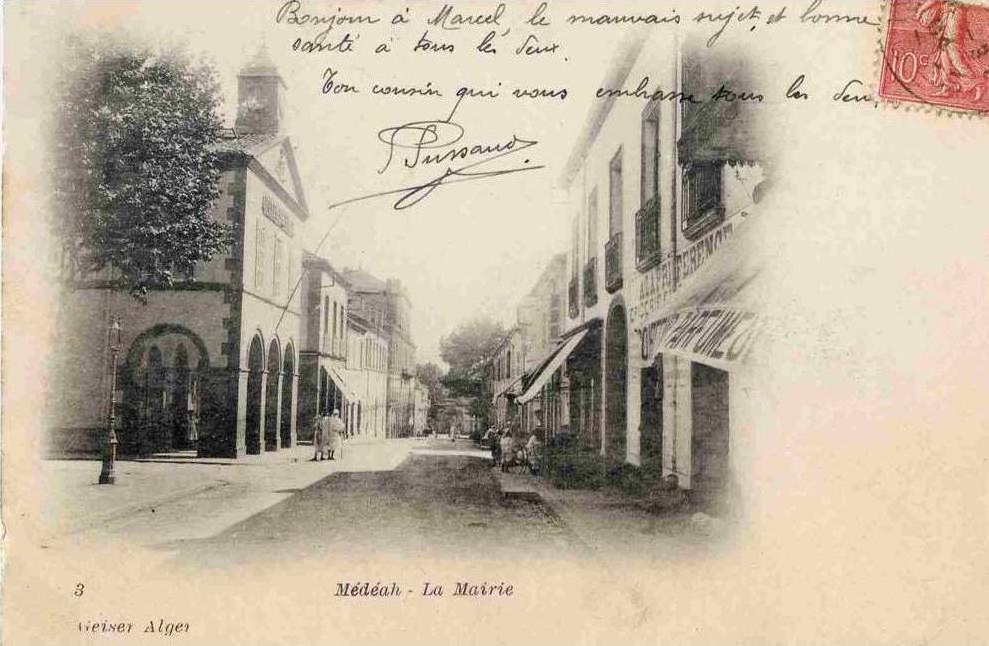 Bonjour à Marcel, le mauvais sujet, et bonne
santé à tous les deux.
Ton cousin qui vous embrasse tous les deux
10c
PARFUMEUR
3
Médéah - La Mairie
Geiser Alger